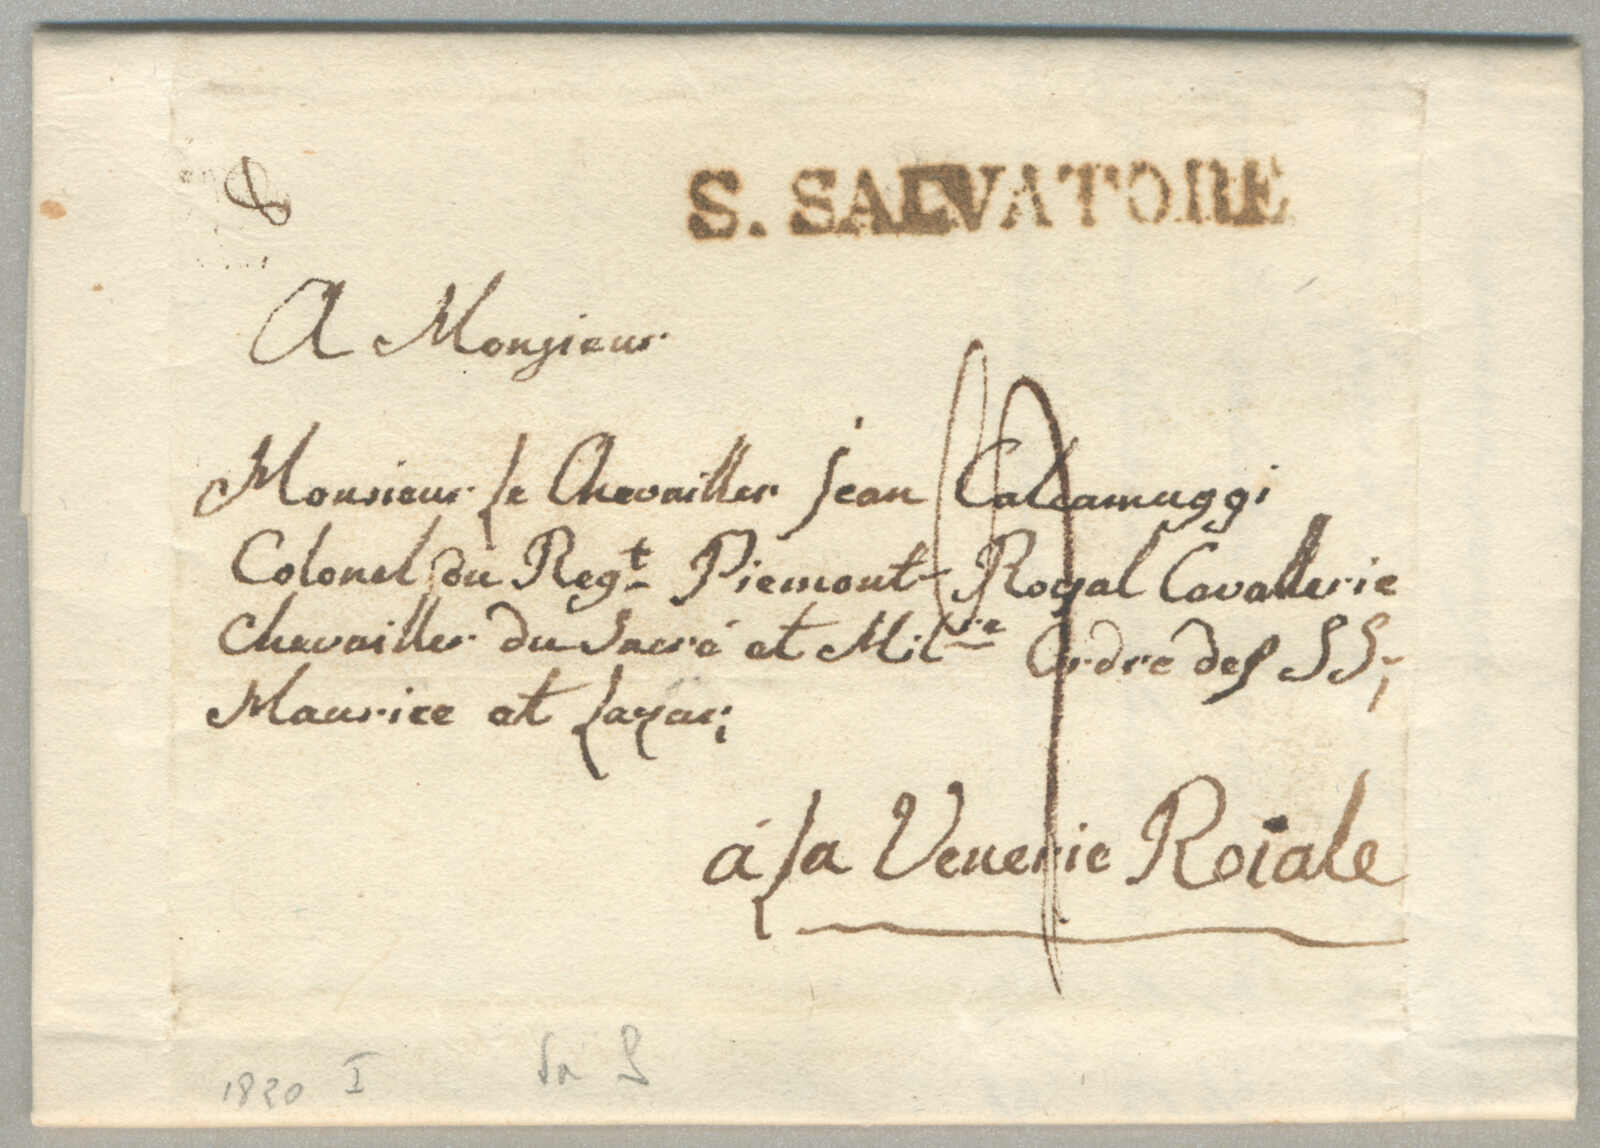 S. SALVATORE
A Monsieur
Monsieur le Chevailler Jean Calcamuggi
Colonel du Regt. Piemont-Royal Cavallerie
Chevailler du Sacré et Milre Ordre des SS;
Maurice et Lazar;
á la Venerie Roiale
1820 I